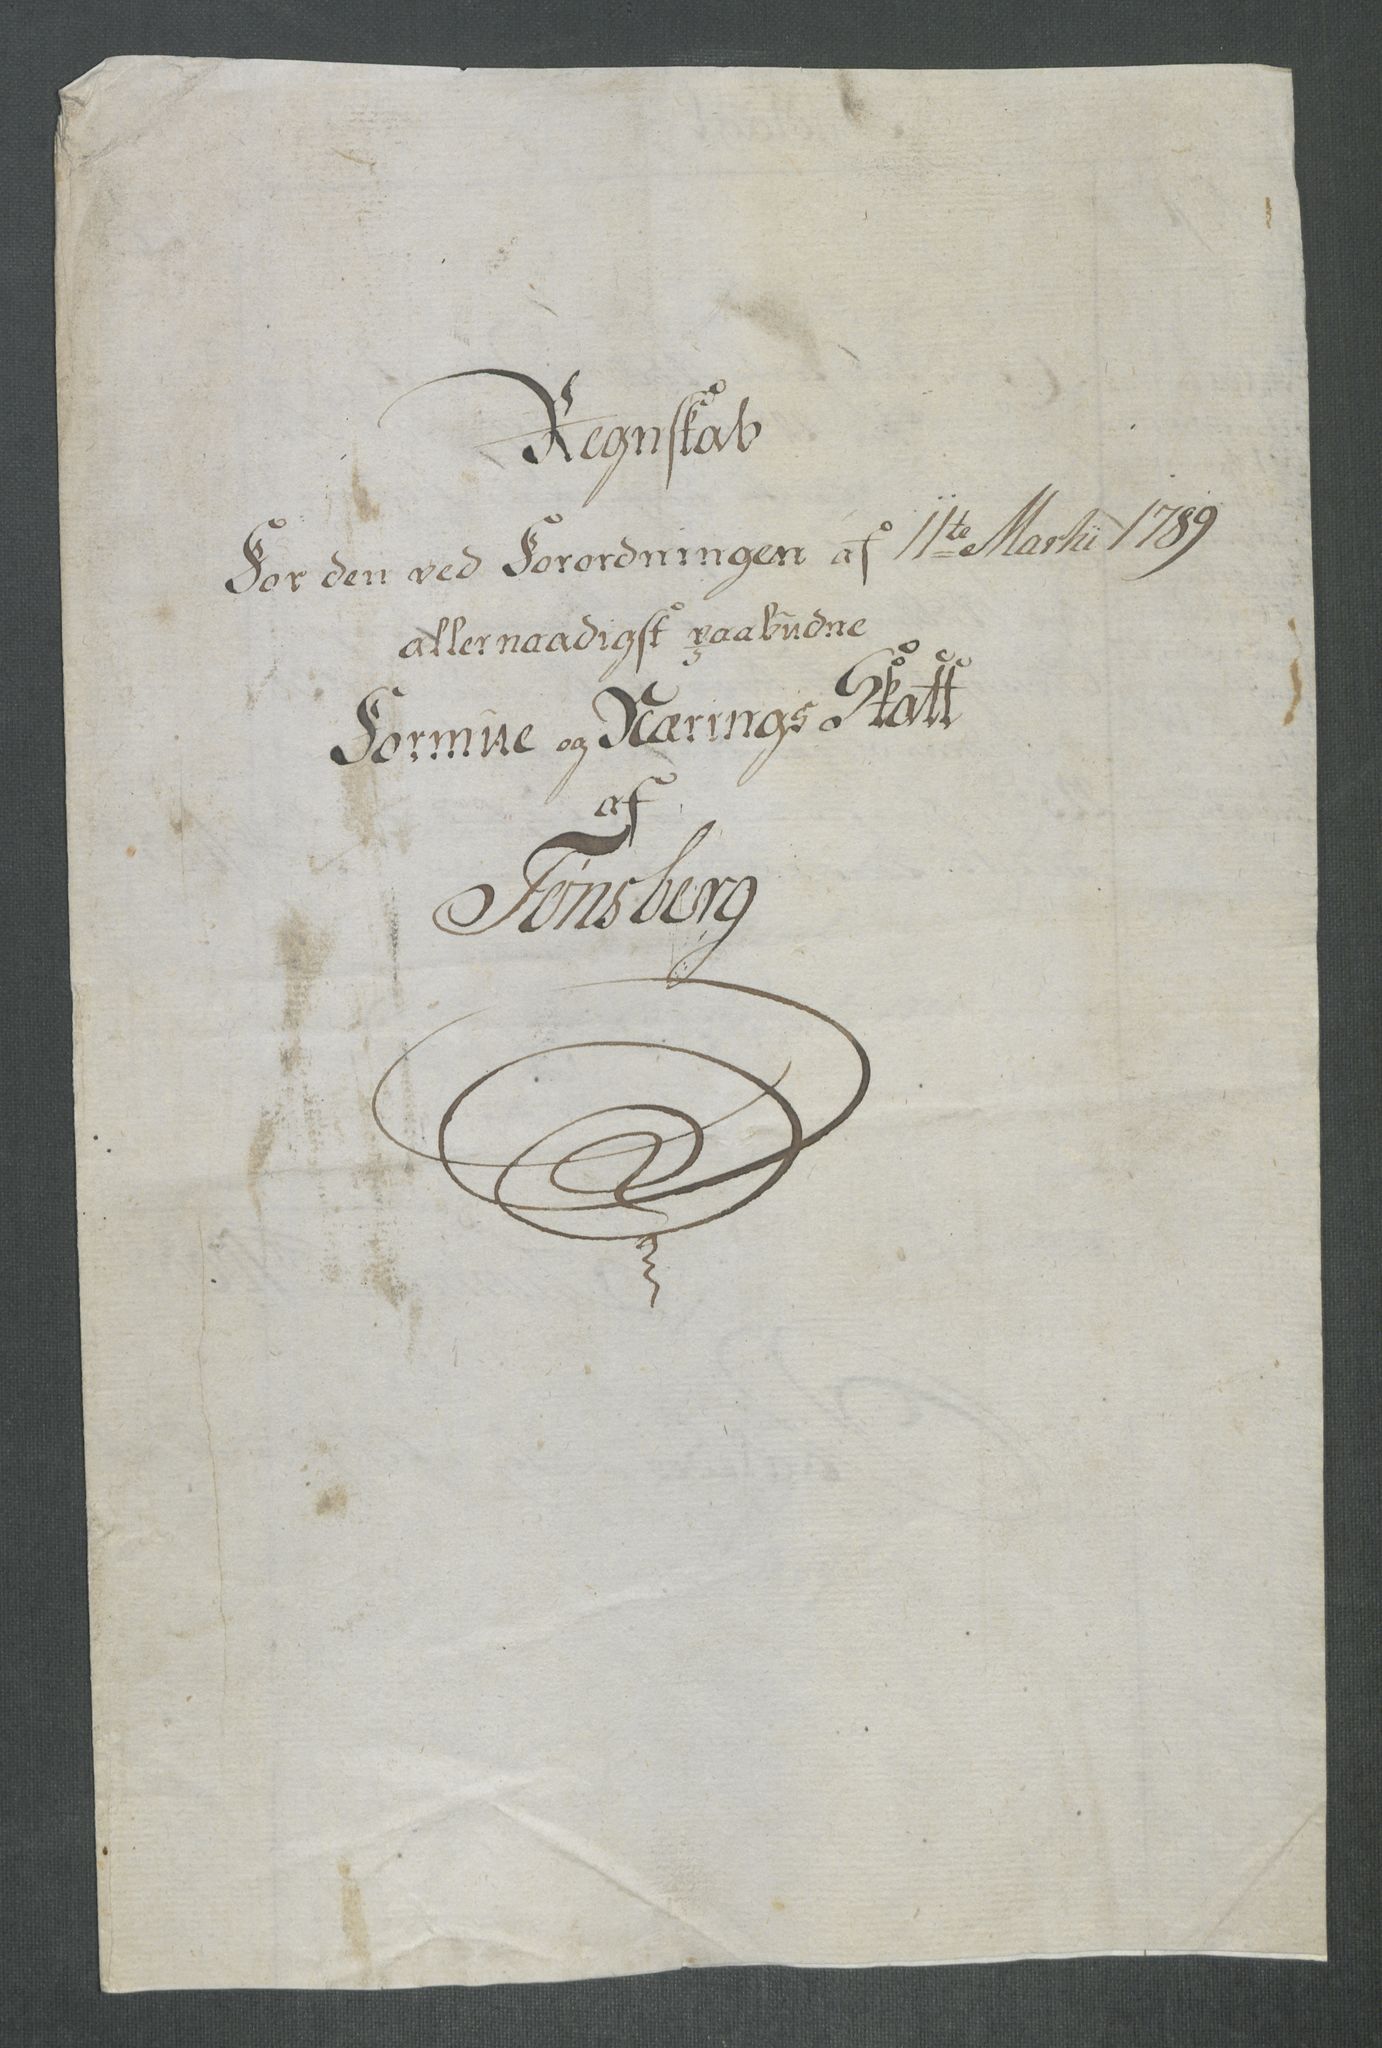 Regnskab
For den ved Forordningen af 11te Martii 1789
allernaadigst paabudne
Formue og Nærings Skatt
af
Tønsberg